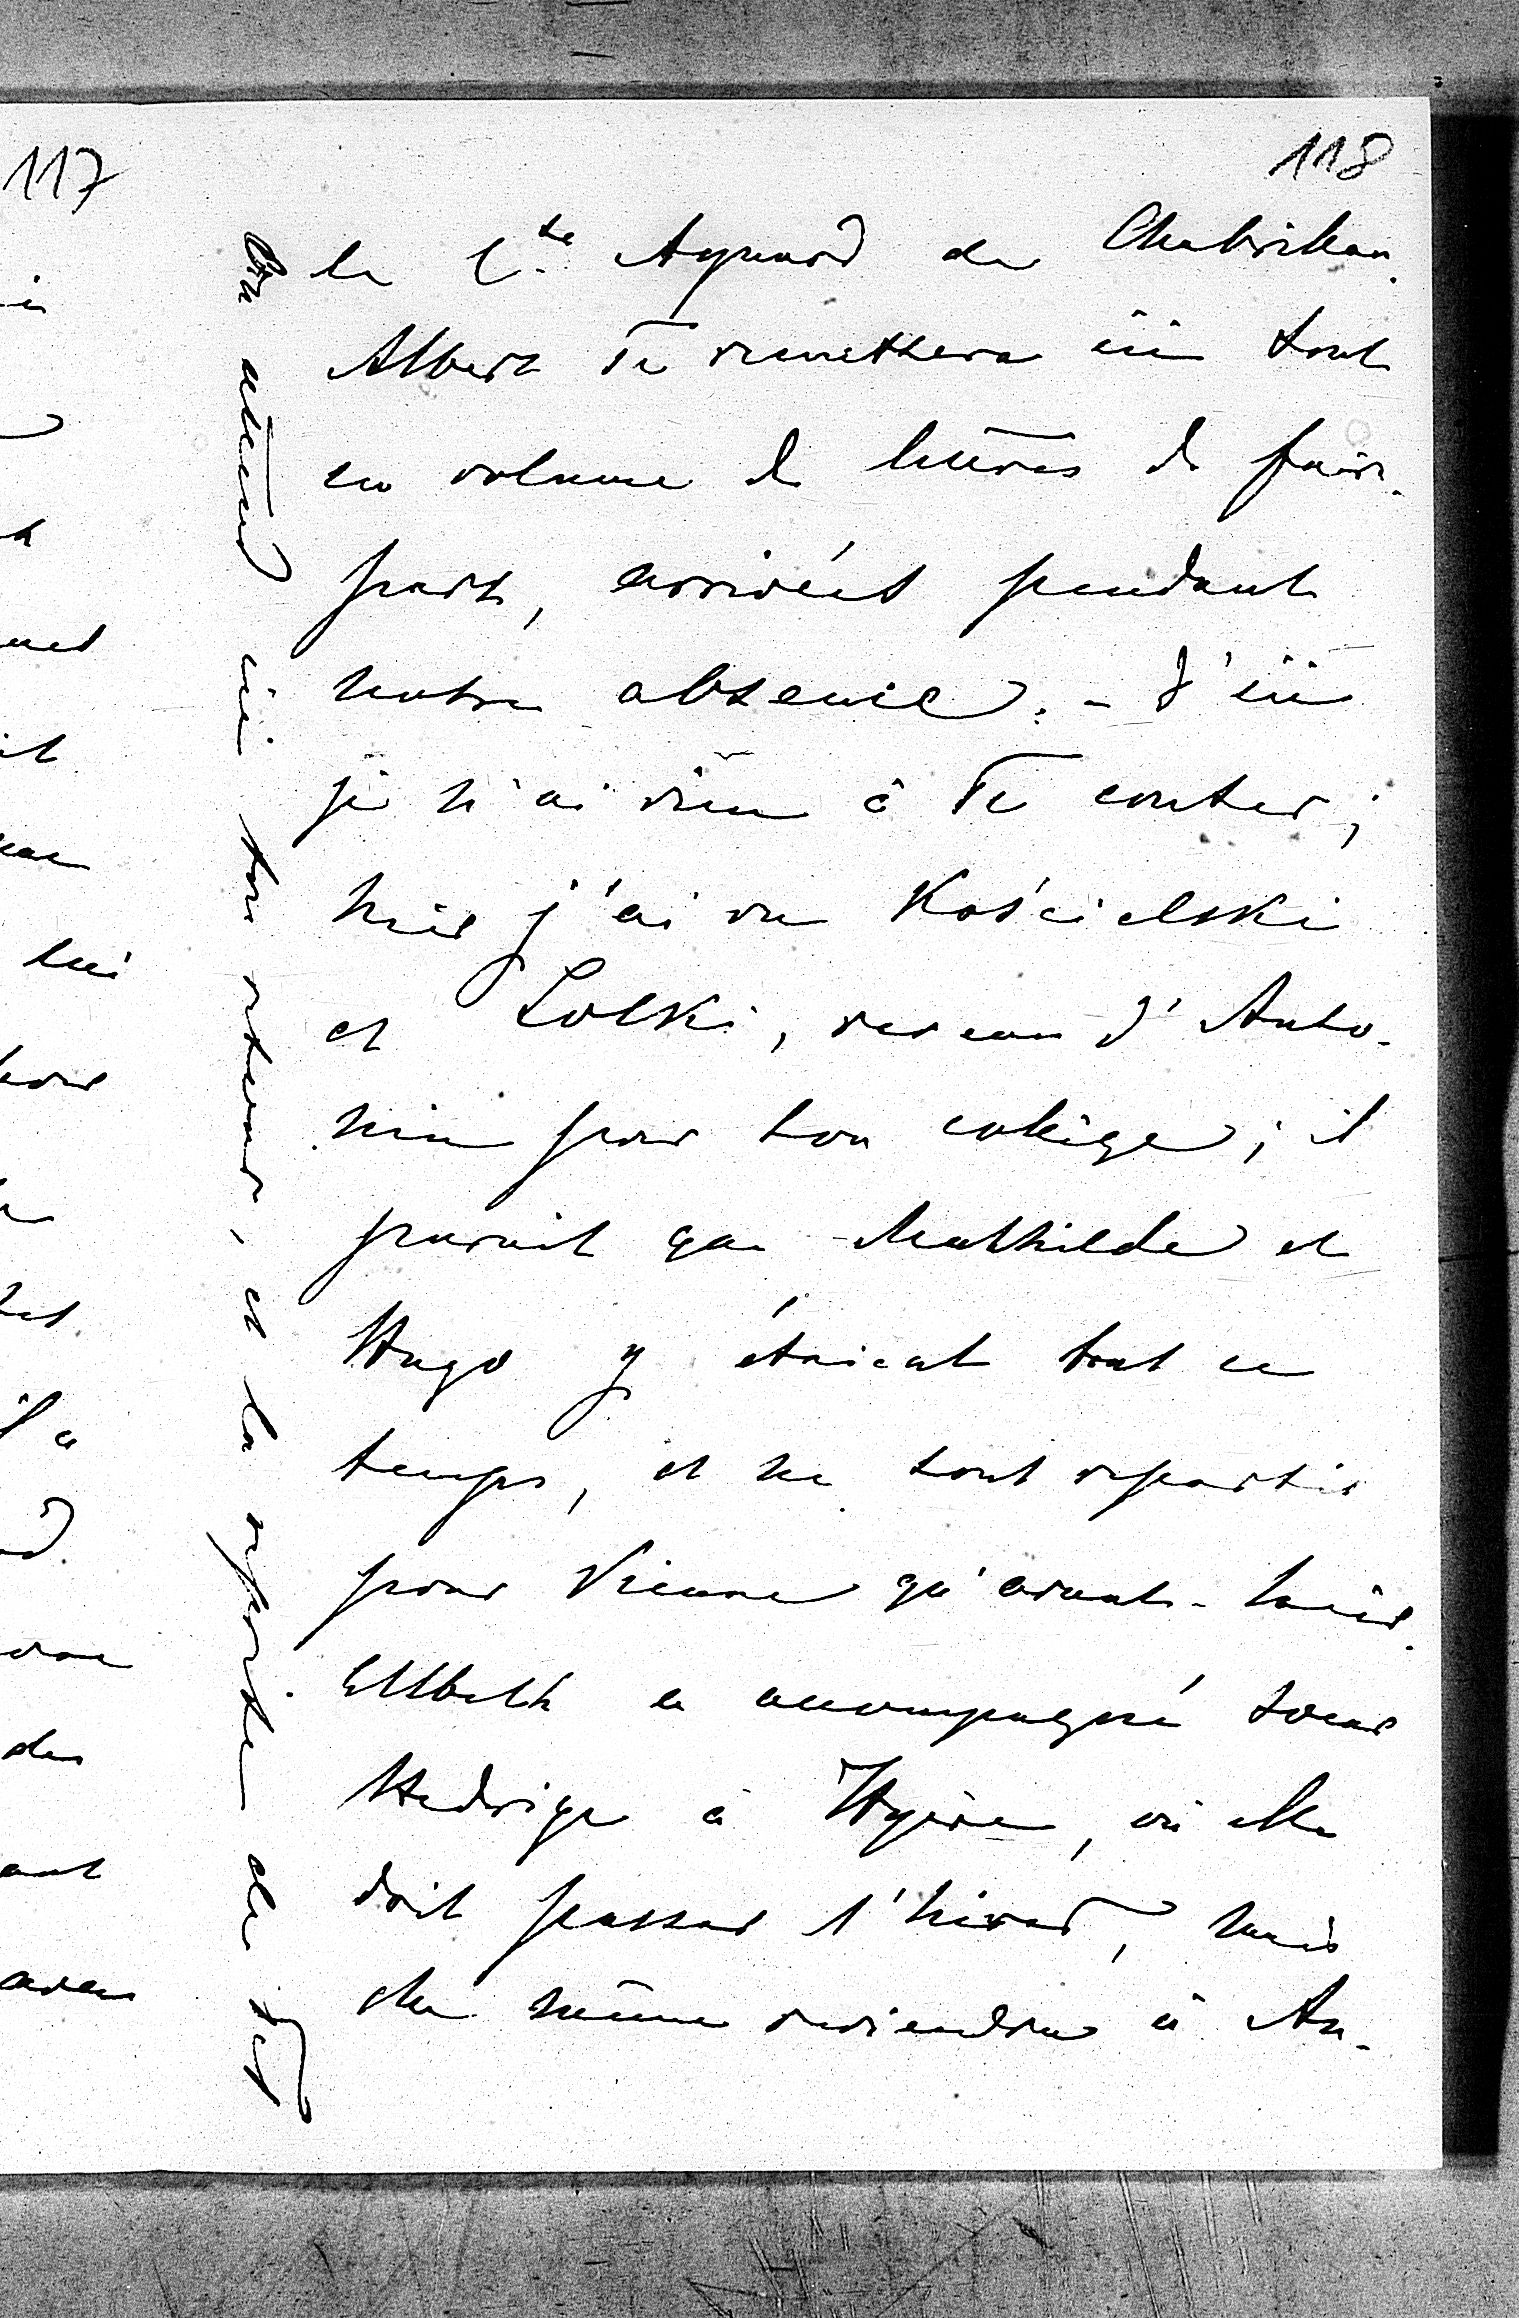 117
118
le Cte Aynard de Chabrillan.
Albert Te remettera ici tout
un volume de lettres de faire-
part, arrivées pendant
notre absence. - D'ici
je n'ai rien à Te conter;
hier j'ai vu Kościelski
et Lolski, revenu d'Anto-
nin pour son collège; il
parait que Mathilde et
Hugo y étaient tout ce
temps, et ne sont repartis
pour Vienne qu'avant-hier.
a accompagné soeur
Hedwige à Hyère, où elle
doit passer l'hiver, mais
elle même reviendra à An-
On attend ici ton retour, et la reprise de